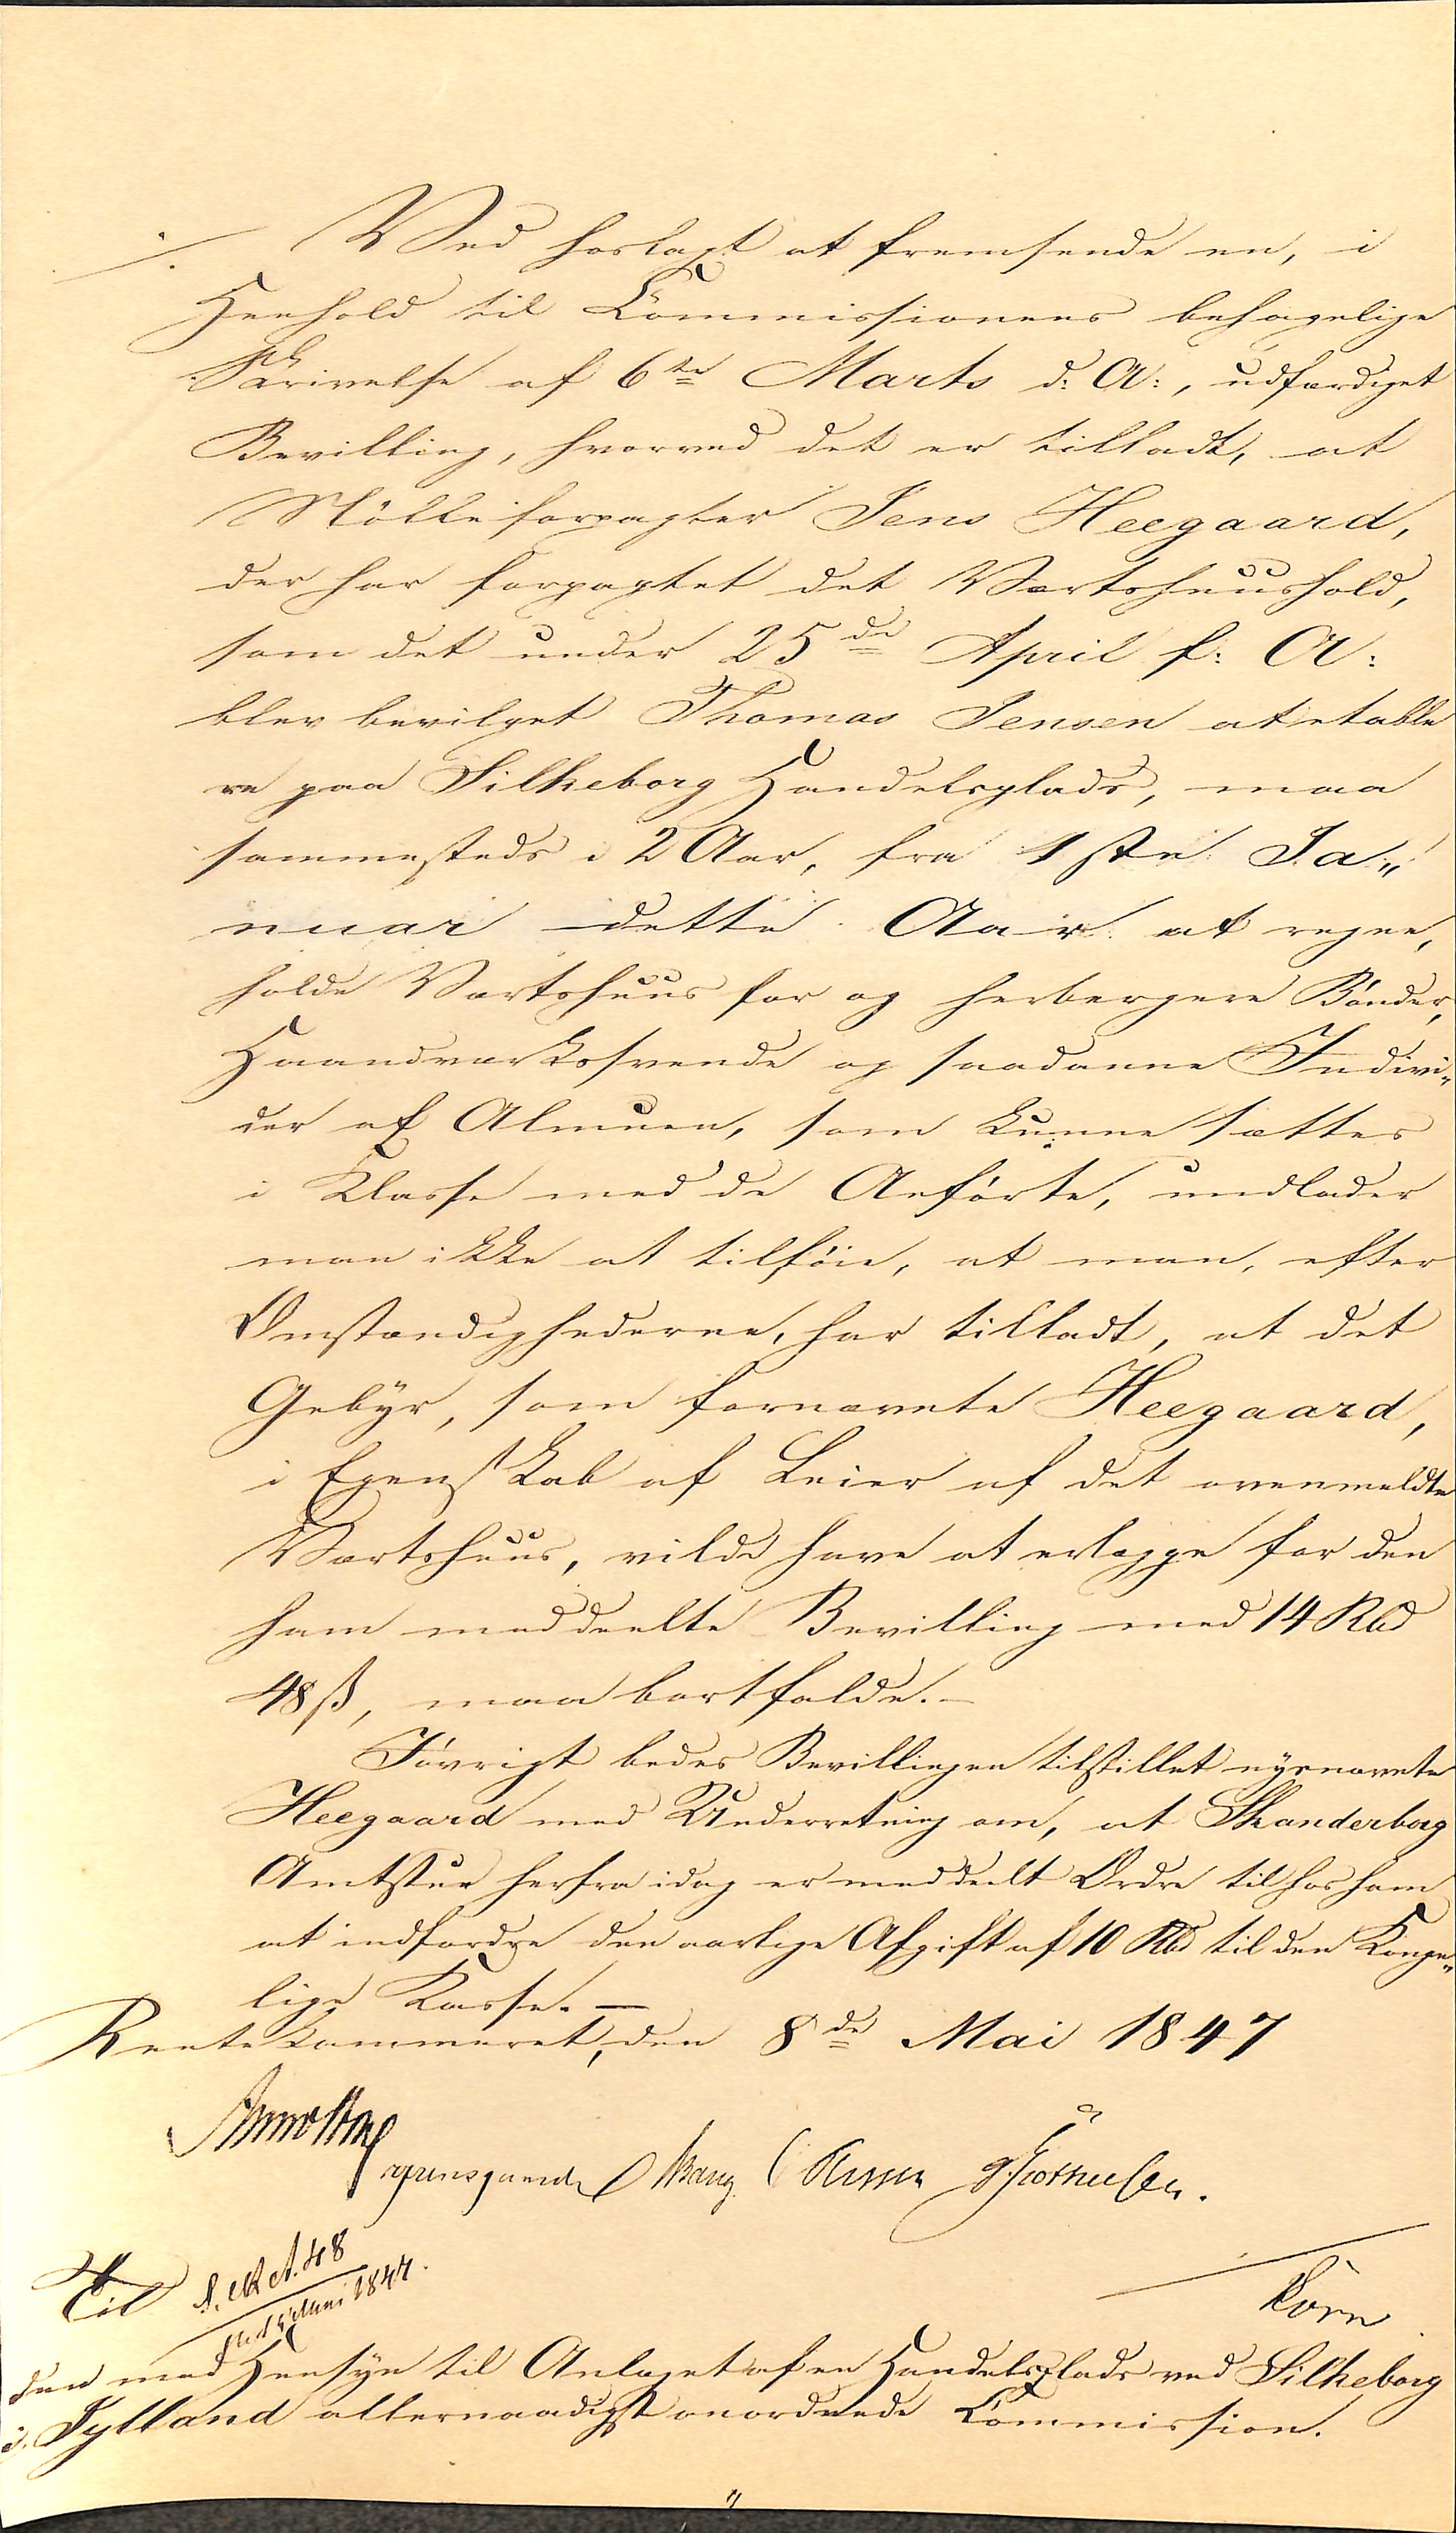 ./. Ved hoslagt at fremsende en, i
Henhold til Commissionens behagelige
Skrivelse af 6te Marts d: A:, udfærdiget
Bevilling, hvorved det er tilladt, at
Mölleforpagter Jens Heegaard,
der har forpagtet det Værtshuushold,
som det under 25de April f: A:
blev bevilget Thomas Jensen at etable
re paa Silkeborg Handelsplads, maa
sammesteds i 2 Aar, fra 1ste Ja„
nuar dette Aar at regne,
holde Værtshuus for og herbergere Bönder,
Haandværkssvende og saadanne Indivi„
der af Almuen, som kunne sættes
i Klasse med de Anförte, undlader
man ikke at tilföie, at man, efter
Omstændighederne, har tilladt, at det
Gebyr, som fornævnte Heegaard,
i Egenskab af Leier af det ovenmeldte
Værtshuus, vilde have at erlægge for den
ham meddeelte Bevilling med 14 Rbd
48 ß, maa bortfalde. —
Iövrigt bedes Bevillingen tilstillet nysnævnte
Heegaard med Underretning om, at Skanderborg
Amtstue herfra idag er meddeelt Ordre til hos ham
at indfordre den aarlige Afgift af 10 Rbd til den Konge„
lige Kasse. —
Rentekammeret, den 8de Mai 1847
Bang
Til
48
Juni 1847.
Korn
den med Hensyn til Anlæget af en Handelsplads ved Silkeborg
i Jylland allernaadigst anordnede Commission.